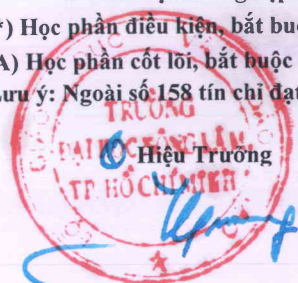 *) Học phần điều kiện, bắt bu
A) Học phần cốt lõi, bắt buộc
Lưu ý: Ngoài số 158 tín chỉ đạt
TRƯỜNG
ĐẠI HỌC NÔNG LÂM
TP. HỒ CHÍ MINH
Hiệu Trưởng